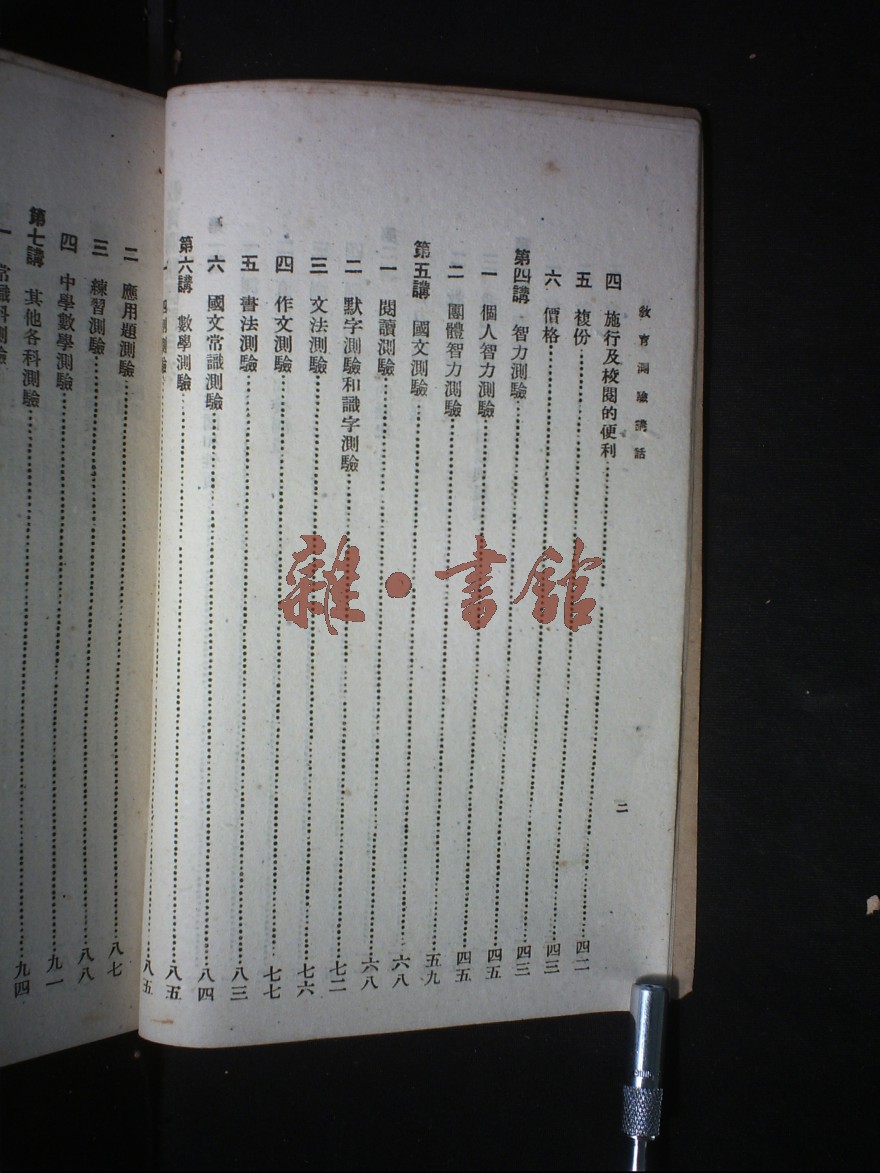 教育測驗講話
二
四 施行及校閱的便利……四二
五 複份……四三
六 價格……四三
第四講 智力測驗……四五
一 個人智力測驗……四五
二 團體智力測驗……五九
第五講 國文測驗……六八
一 閱讀測驗……六八
二 默字測驗和識字測驗……七二
三 文法測驗……七六
四 作文測驗……七七
五 書法測驗……八三
六 國文常識測驗……八四
第六講 數學測驗……八五
測驗……八五
二 應用題測驗……八七
三 練習測驗……八八
四 中學數學測驗……九一
第七講 其他各科測驗……九四
一 常識科測驗
雜·書館